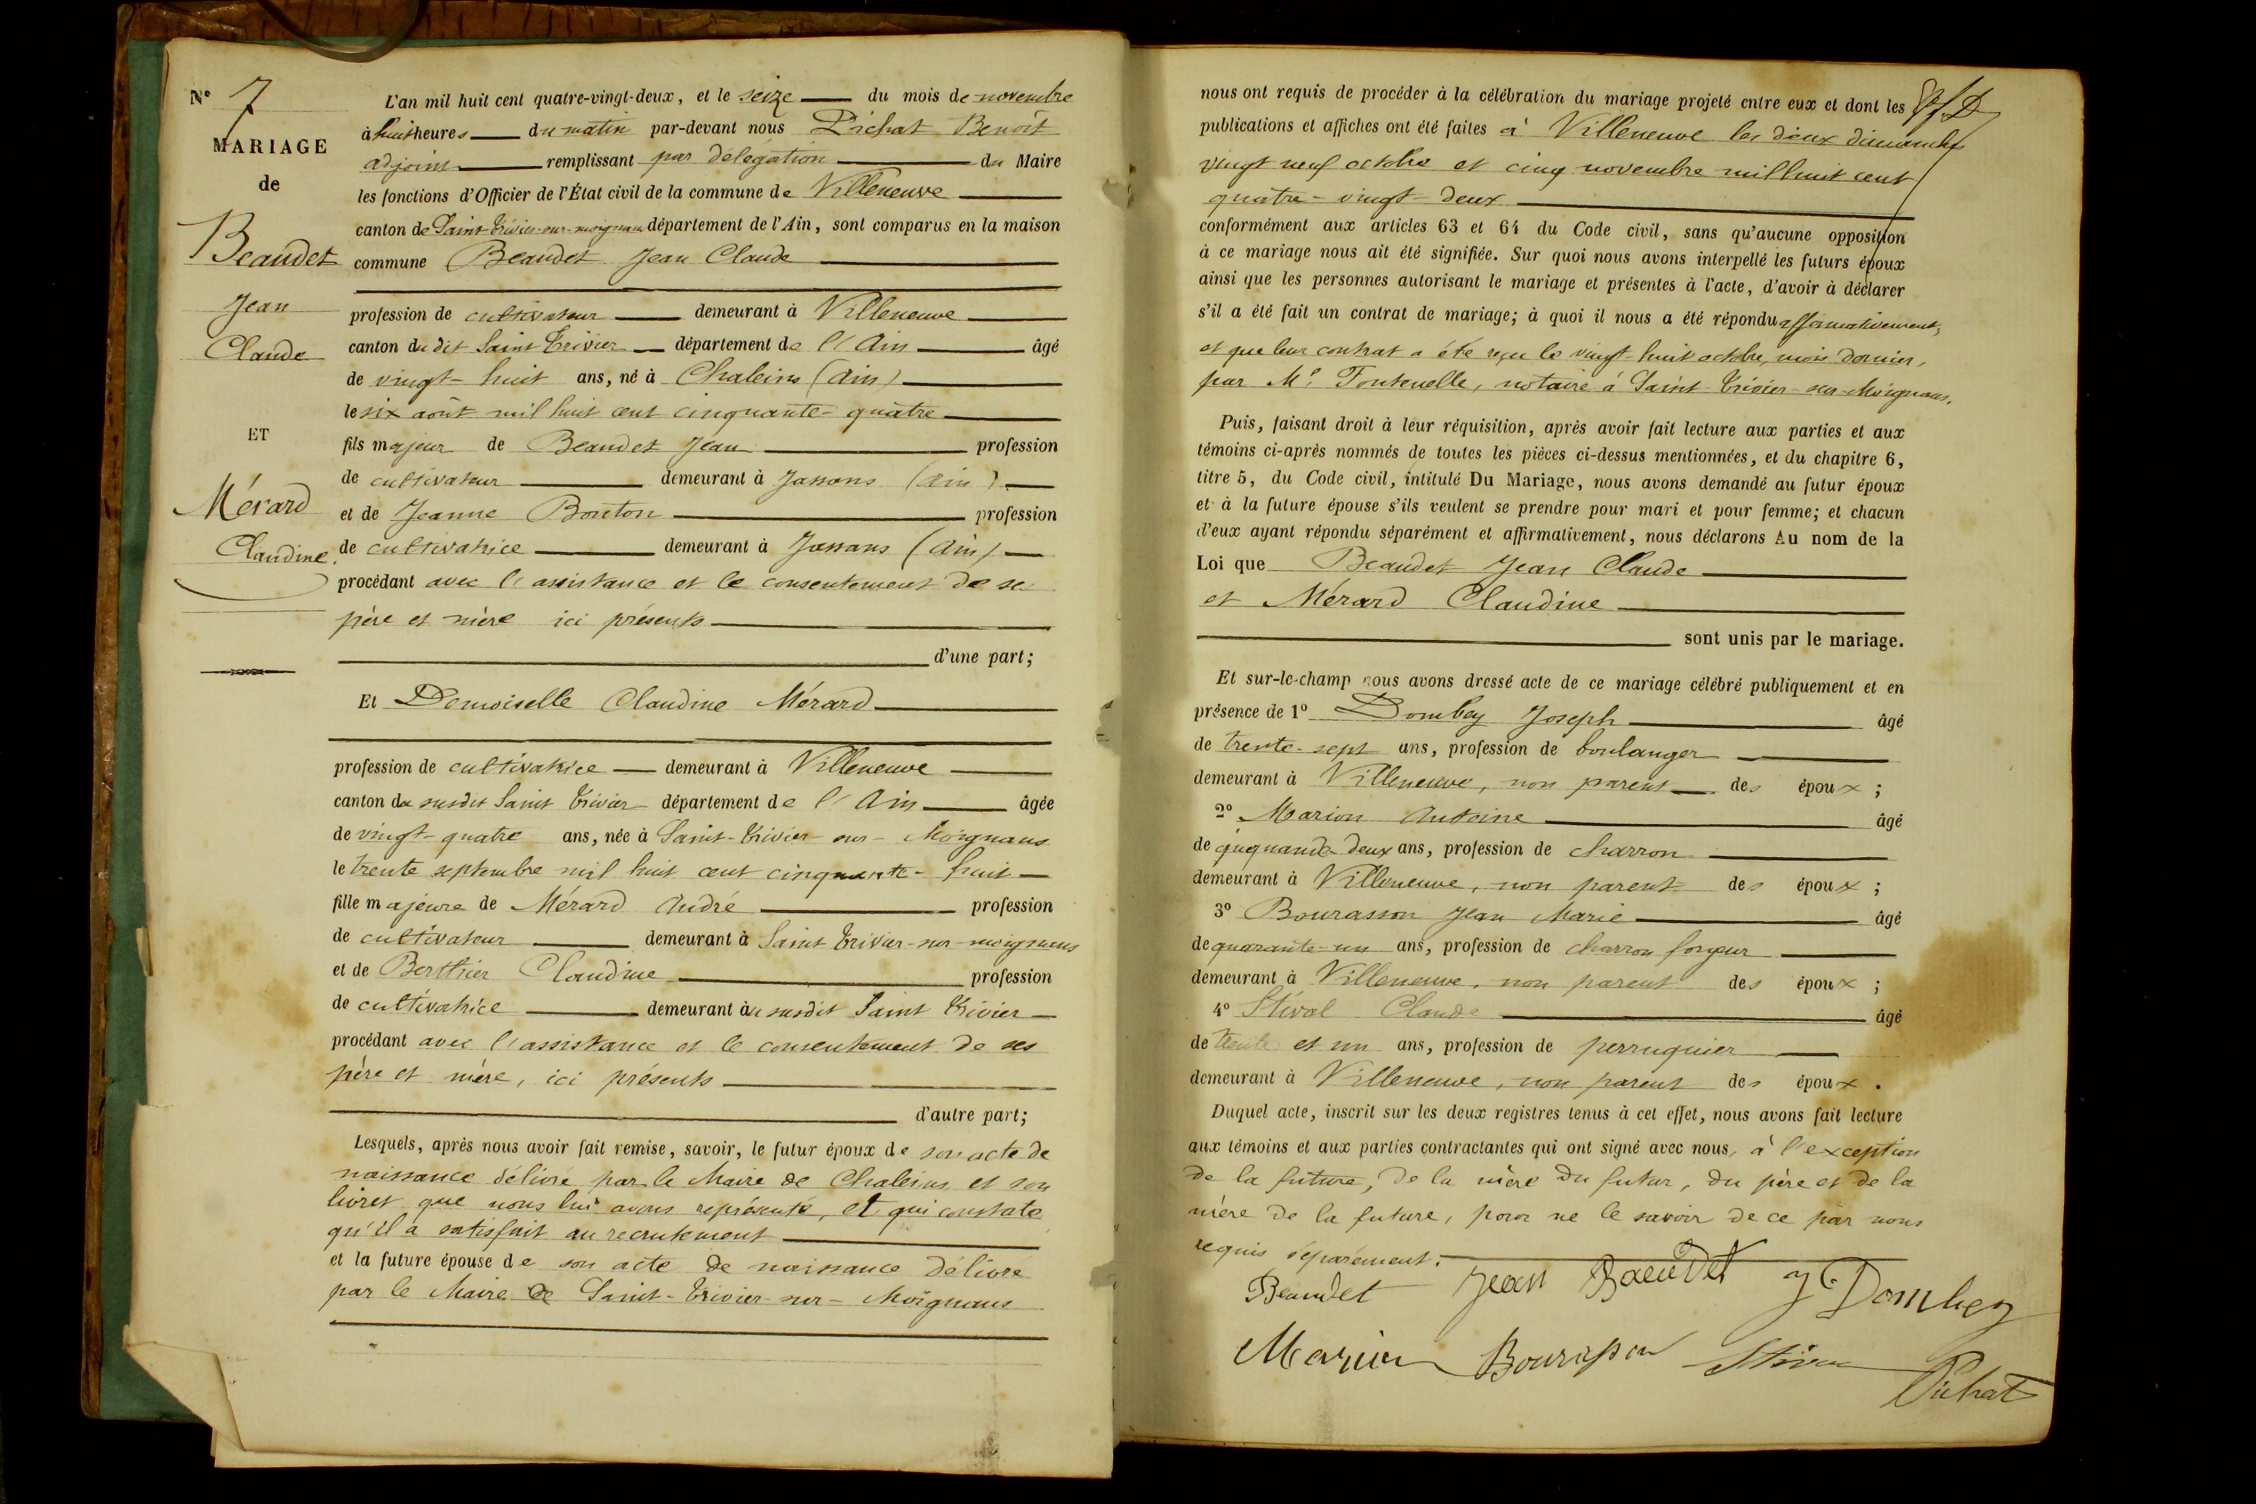 N° 7
MARIAGE
de
Beaudet
Jean
Claude
ET
Mérard
Claudine.
L'an mil huit cent quatre-vingt-deux, et le seize du mois de novembre
à huit heures du matin par-devant nous Pichat Benoît
adjoint remplissant par délégation du Maire
les fonctions d'Officier de l'État civil de la commune de Villeneuve
canton de Saint-Trivier-sur-moignans département de l'Ain, sont comparus en la maison
commune Beaudet Jean Claude
profession de cultivateur demeurant à Villeneuve
canton du dit Saint Trivier département de l'Ain âgé
de vingt-huit ans, né à Chaleins (Ain)
le six août mil huit cent cinquante-quatre
fils majeur de Beaudet Jean profession
de cultivateur demeurant à Jassans (Ain)
et de Jeanne Bouton profession
de cultivatrice demeurant à Jassans (Ain)
procédant avec l'assistance et le consentement de se
père et mère ici présents
d'une part;
Et Demoiselle Claudine Mérard
profession de cultivatrice demeurant à Villeneuve
canton du susdit Saint Trivier département de l'Ain âgée
de vingt-quatre ans, née à Saint-Trivier-sur-Moignans
le trente septembre mil huit cent cinquante-huit
fille majeure de Mérard André profession
de cultivateur demeurant à Saint Trivier-sur-moignans
et de Berthier Claudine profession
de cultivatrice demeurant au susdit Saint Trivier
procédant avec l'assistance et le consentement de ses
père et mère, ici présents
d'autre part;
Lesquels, après nous avoir fait remise, savoir, le futur époux de son acte de
naissance délivré par le Maire de Chaleins et son
livret que nous lui avons représenté, et qui constate
qu'il a satisfait au recrutement
et la future épouse de son acte de naissance délivré
par le Maire de Saint-Trivier-sur-Moignans
nous ont requis de procéder à la célébration du mariage projeté entre eux et dont les
publications et affiches ont été faites à Villeneuve les deux dimanches
vingt neuf octobre et cinq novembre mil huit cent
quatre-vingt-deux
conformément aux articles 63 et 64 du Code civil, sans qu'aucune opposition
à ce mariage nous ait été signifiée. Sur quoi nous avons interpellé les futurs époux
ainsi que les personnes autorisant le mariage et présentes à l'acte, d'avoir à déclarer
s'il a été fait un contrat de mariage; à quoi il nous a été répondu affirmativement,
et que leur contrat a été reçu le vingt-huit octobre, mois dernier,
par Me Fontenelle, notaire à Saint-Trivier-sur-Moignans.
Puis, faisant droit à leur réquisition, après avoir fait lecture aux parties et aux
témoins ci-après nommés de toutes les pièces ci-dessus mentionnées, et du chapitre 6,
titre 5, du Code civil, intitulé Du Mariage, nous avons demandé au futur époux
et à la future épouse s'ils veulent se prendre pour mari et pour femme; et chacun
d'eux ayant répondu séparément et affirmativement, nous déclarons Au nom de la
Loi que Beaudet Jean Claude
et Mérard Claudine
sont unis par le mariage.
Et sur-le-champ nous avons dressé acte de ce mariage célébré publiquement et en
présence de 1° Dombey Joseph âgé
de trente-sept ans, profession de boulanger
demeurant à Villeneuve, non parent des époux;
2° Marion Antoine âgé
de cinquante-deux ans, profession de charron
demeurant à Villeneuve, non parent des époux;
3° Bourasson Jean Marie âgé
de quarante-un ans, profession de charron forgeur
demeurant à Villeneuve, non parent des époux;
4° Stival Claude âgé
de trente et un ans, profession de perruquier
demeurant à Villeneuve, non parent des époux.
Duquel acte, inscrit sur les deux registres tenus à cet effet, nous avons fait lecture
aux témoins et aux parties contractantes qui ont signé avec nous, à l'exception
de la future, de la mère du futur, du père et de la
mère de la future, pour ne le savoir de ce par nous
requis séparément.
Beaudet Jean Baeudet J C Dombey
Marion Bourasson Stival
Pichat